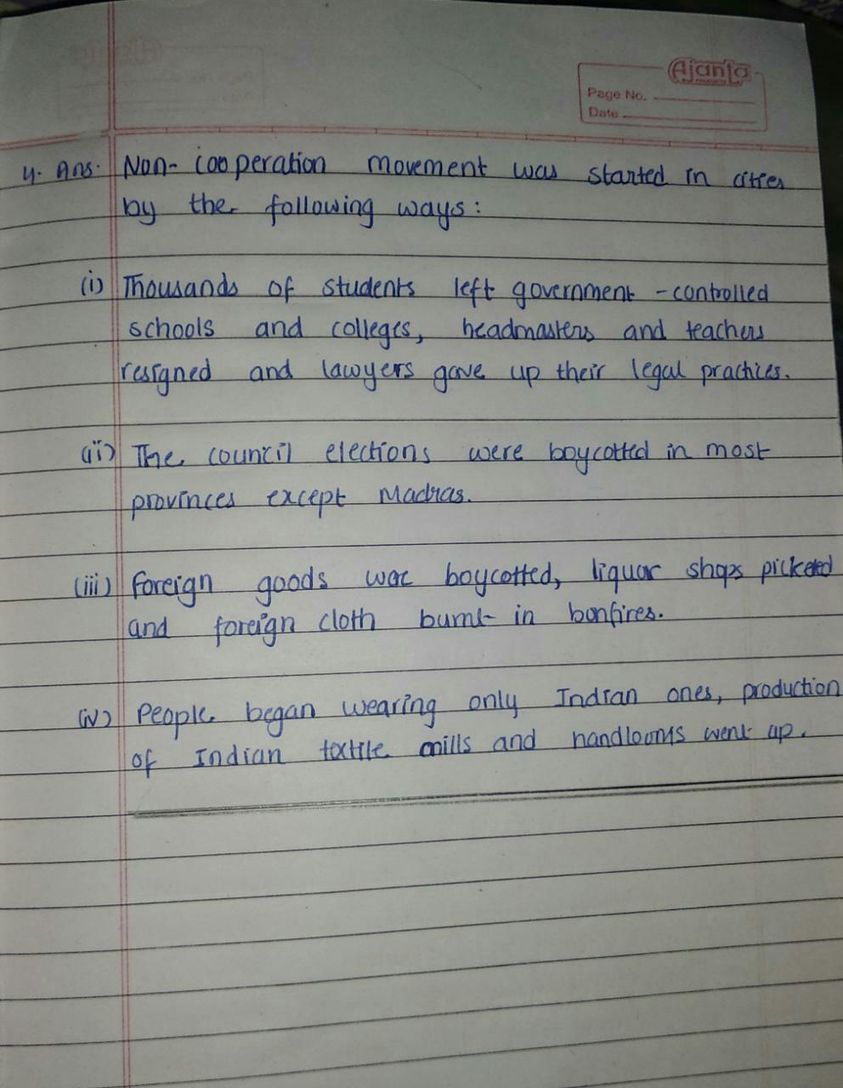 Ajanta
Page No.
Date
4. Ans. Non-cooperation movement was started in cities
by the following ways:
(i) Thousands of students left government-controlled
schools and colleges, headmasters and teachers
resigned and lawyers gave up their legal practices.
(ii) The council elections were boycotted in most
provinces except Madras.
(iii) Foreign goods were boycotted, liquor shops picketed
and foreign cloth burnt in bonfires.
(iv) People began wearing only Indian ones, production
of Indian textile mills and handlooms went up.